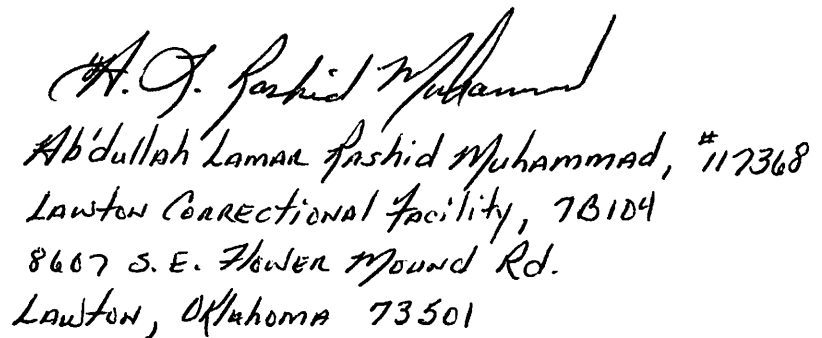 A. L. Rashid Muhammad
Abdullah Lamar Rashid Muhammad, #117368
Lawton Correctional Facility, 7B104
8607 S.E. Flower Mound Rd.
Lawton, Oklahoma 73501